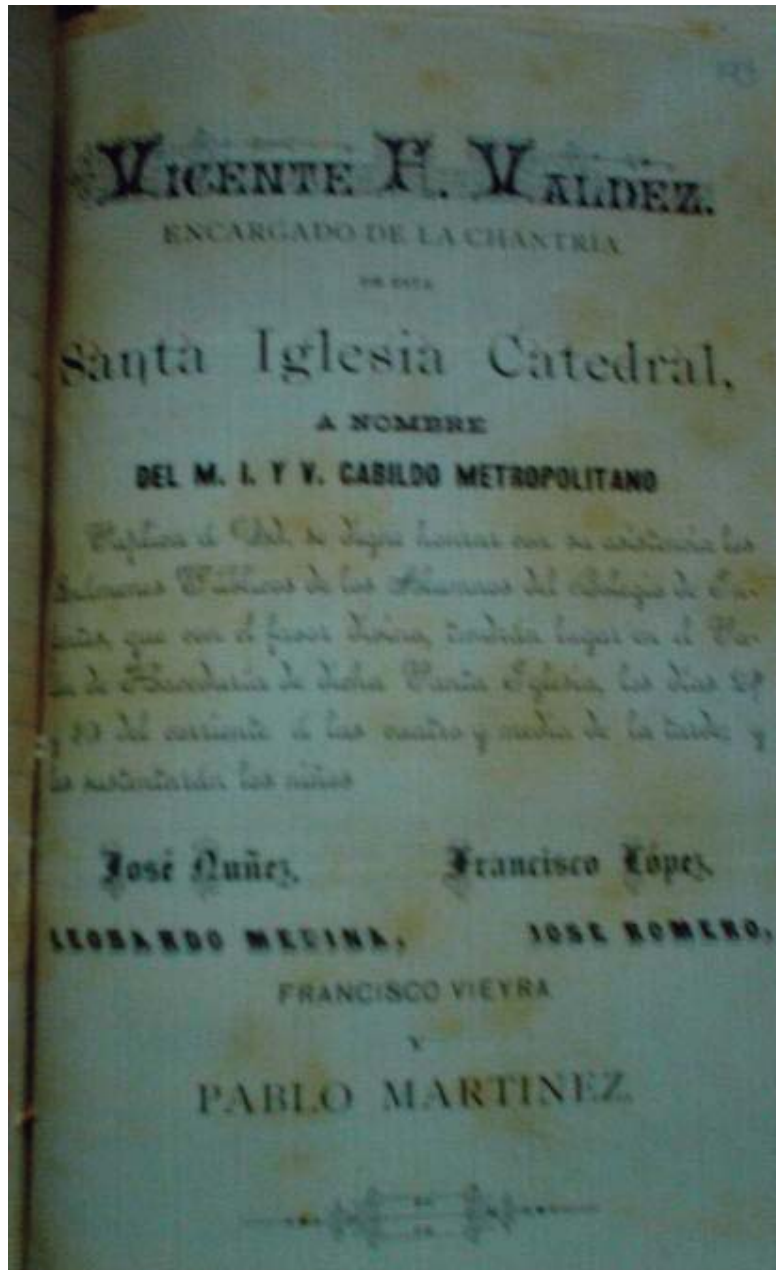 VICENTE F. VALDEZ.
ENCARGADO DE LA CHANTRÍA
DE ESTA
Santa Iglesia Catedral,
A NOMBRE
DEL M. I. Y V. CABILDO METROPOLITANO
Suplica á Ud. se digne honrar con su asistencia los
Exámenes Públicos de los Alumnos del Colegio de In-
fantes, que con el favor divino, tendrán lugar en el
de Haceduría de dicha Santa Iglesia, los días 29
y 30 del corriente á las cuatro y media de la tarde, y
los sustentarán los niños
José Nuñez, Francisco López,
LEOBARDO MEDINA, JOSE ROMERO,
FRANCISCO VIEYRA
Y
PABLO MARTINEZ.